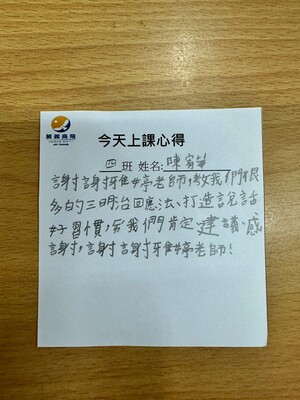 展義高飛
今天上課心得
四班 姓名:陳宥華
謝謝雅婷老師,教我們很
多的三明治回應法、打造說話
好習慣,另我們肯定建議、感
謝,謝謝雅婷老師!